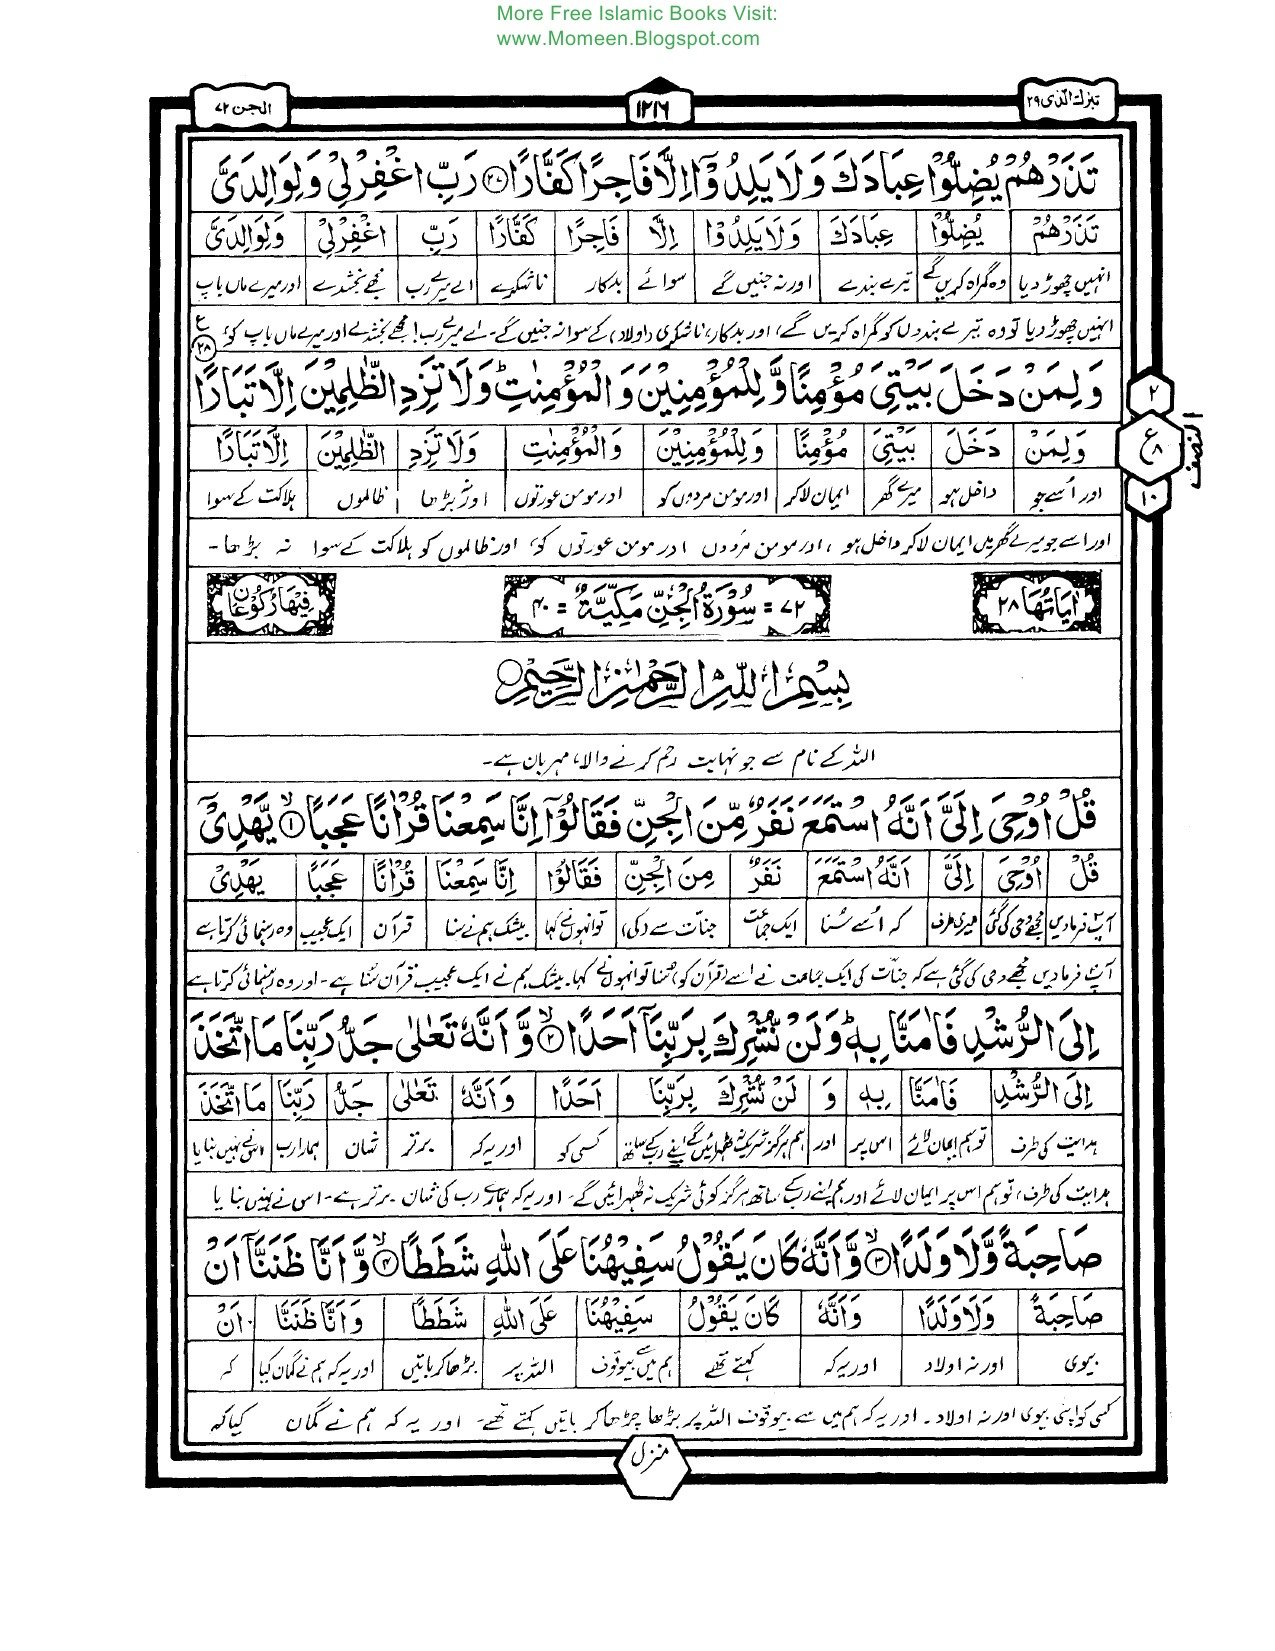 More Free Islamic Books Visit:
www.Momeen.Blogspot.com
تبٰرك الذی ۲۹
۱۲۱۶
الجن ۷۲
تَذَرْهُمْ يُضِلُّوْا عِبَادَكَ وَلَا يَلِدُوْٓا اِلَّا فَاجِرًا كَفَّارًا ۲۷ رَبِّ اغْفِرْلِیْ وَلِوَالِدَیَّ
تَذَرْهُمْ يُضِلُّوْا عِبَادَكَ وَلَا يَلِدُوْا اِلَّا فَاجِرًا كَفَّارًا رَبِّ اغْفِرْلِیْ وَلِوَالِدَیَّ
انہیں چھوڑ دیا وہ گمراہ کریں گے تیرے بندے اور نہ جنیں گے سوائے بدکار ناشکرے اے میرے رب مجھے بخشدے اور میرے ماں باپ
انہیں چھوڑ دیا تو وہ تیرے بندوں کو گمراہ کریں گے، اور بدکار، ناشکری (اولاد) کے سوا نہ جنیں گے۔ اے میرے رب! مجھے بخشدے اور میرے ماں باپ کو ۲۸
وَلِمَنْ دَخَلَ بَيْتِیَ مُؤْمِنًا وَّلِلْمُؤْمِنِيْنَ وَالْمُؤْمِنٰتِ ؕ وَلَا تَزِدِ الظّٰلِمِيْنَ اِلَّا تَبَارًا
وَلِمَنْ دَخَلَ بَيْتِیَ مُؤْمِنًا وَلِلْمُؤْمِنِيْنَ وَالْمُؤْمِنٰتِ وَلَا تَزِدِ الظّٰلِمِيْنَ اِلَّا تَبَارًا
اور اُسے جو داخل ہو میرے گھر ایمان لاکر اور مومن مردوں کو اور مومن عورتوں اور نہ بڑھا ظالموں ہلاکت کے سوا
اور اسے جو میرے گھر میں ایمان لاکر داخل ہو، اور مومن مَردوں اور مومن عورتوں کو، اور ظالموں کو ہلاکت کے سوا نہ بڑھا۔
۲
ع ۸
۱۰
النصف
اٰيَاتُهَا ۲۸
۷۲ = سُوْرَةُ الْجِنِّ مَكِّيَّةٌ = ۴۰
فِيْهَا رُكُوْعَانِ
بِسْمِ اللّٰهِ الرَّحْمٰنِ الرَّحِيْمِ
اللہ کے نام سے جو نہایت رحم کرنے والا، مہربان ہے۔
قُلْ اُوْحِیَ اِلَیَّ اَنَّهُ اسْتَمَعَ نَفَرٌ مِّنَ الْجِنِّ فَقَالُوْٓا اِنَّا سَمِعْنَا قُرْاٰنًا عَجَبًا ۱ يَّهْدِیْٓ
قُلْ اُوْحِیَ اِلَیَّ اَنَّهُ اسْتَمَعَ نَفَرٌ مِنَ الْجِنِّ فَقَالُوْا اِنَّا سَمِعْنَا قُرْاٰنًا عَجَبًا يَهْدِیْٓ
آپ فرمادیں مجھے وحی کی گئی میری طرف کہ اُسے سُنا ایک جماعت جنات سے (کی) تو انہوں نے کہا بیشک ہم نے سنا قرآن ایک عجیب وہ رہنمائی کرتا ہے
آپ فرمادیں مجھے وحی کی گئی ہے کہ جنات کی ایک جماعت نے اسے (قرآن کو) سُنا تو انہوں نے کہا۔ بیشک ہم نے ایک عجیب قرآن سُنا ہے۔ اور وہ رہنمائی کرتا ہے
اِلَی الرُّشْدِ فَاٰمَنَّا بِهٖ ؕ وَلَنْ نُّشْرِكَ بِرَبِّنَآ اَحَدًا ۲ وَّاَنَّهٗ تَعٰلٰی جَدُّ رَبِّنَا مَا اتَّخَذَ
اِلَی الرُّشْدِ فَاٰمَنَّا بِهٖ وَ لَنْ نُّشْرِكَ بِرَبِّنَا اَحَدًا وَاَنَّهٗ تَعٰلٰی جَدُّ رَبِّنَا مَا اتَّخَذَ
ہدایت کی طرف تو ہم ایمان لائے اس پر اور ہم ہرگز شریک نہ ٹھہرائیں گے اپنے رب کے ساتھ کسی کو اور یہ کہ برتر شان ہمارا رب اس نے نہیں بنایا
ہدایت کی طرف، تو ہم اس پر ایمان لائے اور ہم اپنے رب کے ساتھ ہرگز کوئی شریک نہ ٹھہرائیں گے۔ اور یہ کہ ہمارے رب کی شان۔ برتر ہے۔ اس نے نہیں بنایا
صَاحِبَةً وَّلَا وَلَدًا ۳ وَّاَنَّهٗ كَانَ يَقُوْلُ سَفِيْهُنَا عَلَی اللّٰهِ شَطَطًا ۴ وَّاَنَّا ظَنَنَّآ اَنْ
صَاحِبَةً وَلَا وَلَدًا وَاَنَّهٗ كَانَ يَقُوْلُ سَفِيْهُنَا عَلَی اللّٰهِ شَطَطًا وَاَنَّا ظَنَنَّا اَنْ
بیوی اور نہ اولاد اور یہ کہ کہتے تھے ہم میں سے بیوقوف اللہ پر بڑھا کر باتیں اور یہ کہ ہم نے گمان کیا کہ
کسی کو اپنی بیوی اور نہ اولاد۔ اور یہ کہ ہم میں سے بیوقوف اللہ پر بڑھا چڑھا کر باتیں کہتے تھے۔ اور یہ کہ ہم نے گمان کیا کہ
منزل